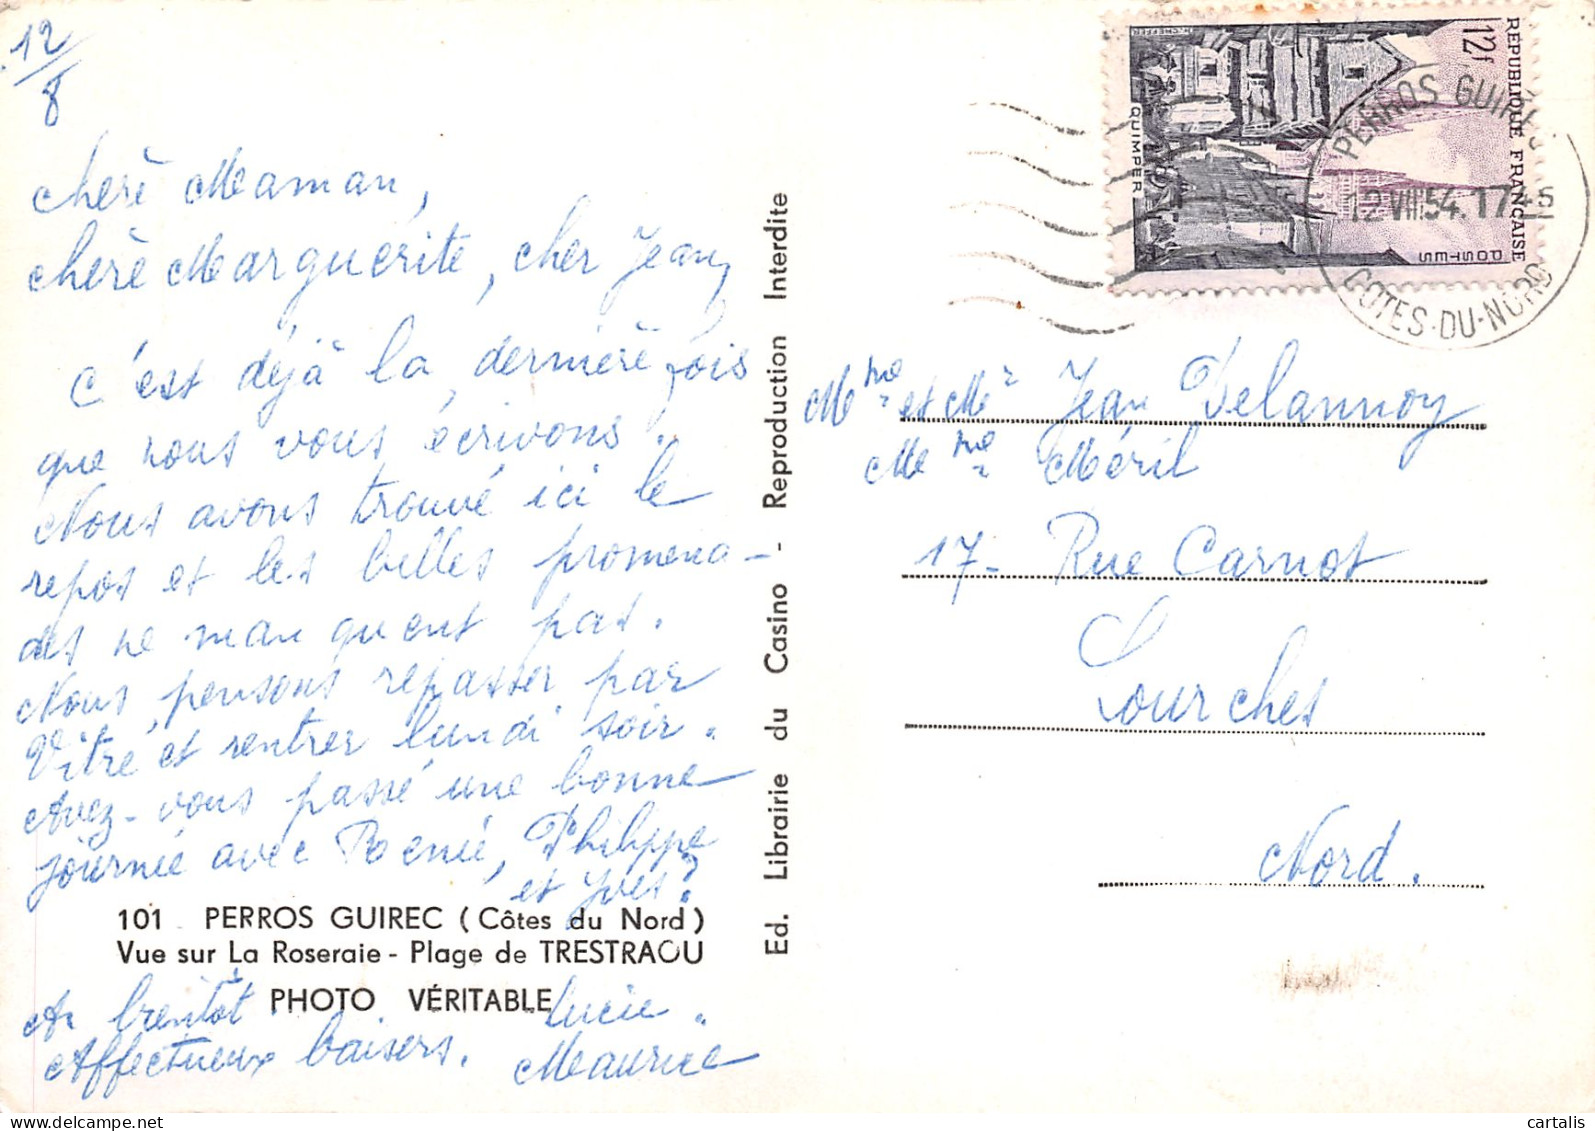 12/8
Chère Maman,
chère Marguerite, cher Jean,
C'est déjà la dernière fois
que nous vous écrivons.
Nous avons trouvé ici le
repos et les belles promena-
des ne manquent pas.
Nous pensons repasser par
Vitré et rentrer lundi soir.
Avez-vous passé une bonne
journée avec Renée, Philippe
et Yves?
101 PERROS GUIREC (Côtes du Nord)
Vue sur La Roseraie - Plage de TRESTRAOU
PHOTO VÉRITABLE
A bientôt
Affectueux baisers.
Lucie.
Maurice
Ed. Librairie du Casino - Reproduction Interdite
12f
RÉPUBLIQUE FRANÇAISE
POSTES
QUIMPER
PERROS GUIREC
12 VIII 54. 17 45
COTES-DU-NORD
Mme et Mr Jean Delannoy
Mme Méril
17- Rue Carnot
Lourches
Nord.
cartalis